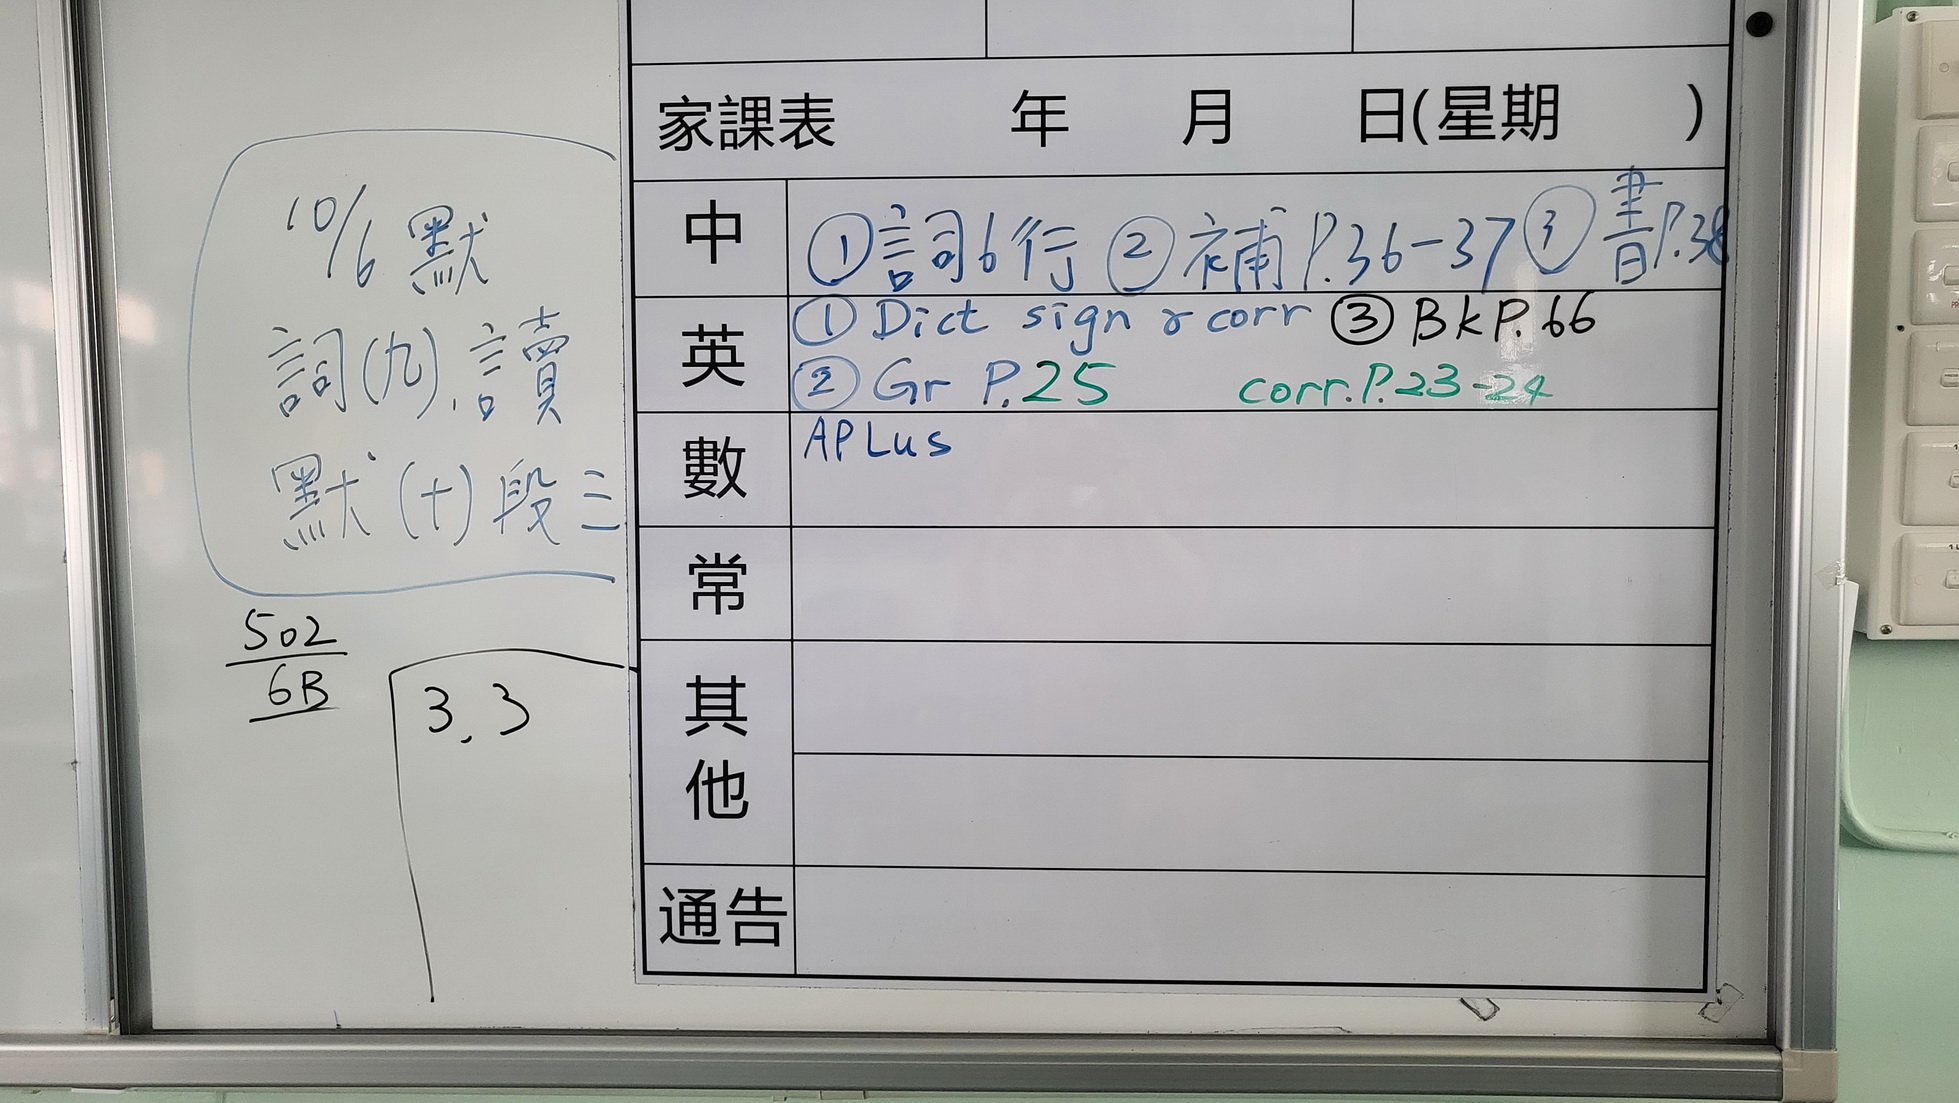 10/6 默
詞(九)、讀
默(十)段三
502
6B
3.3
家課表 年 月 日(星期 )
中 ①詞6行 ②補P.36-37 ③書P.38
英 ① Dict sign & corr ③ Bk P.66
② Gr P.25 corr.P.23-24
數 APLus
常
其他
通告